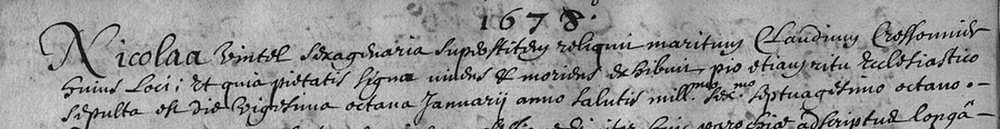 1678.
Nicolaa Vintel sexagenaria superstitem reliquit maritum Claudium Crossonnier
huius loci; et quia pietatis signa vivens et moriens exhibuit, pio etiam ritu Ecclesiastico
sepulta est die vigesima octava Januarij anno salutis mill.mo sex.mo septuagesimo octavo.
adscriptus